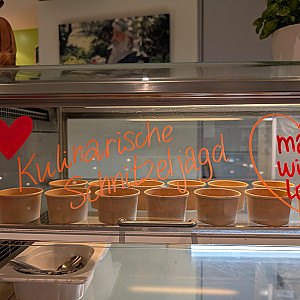 Kulinarische
Schnitzeljagd